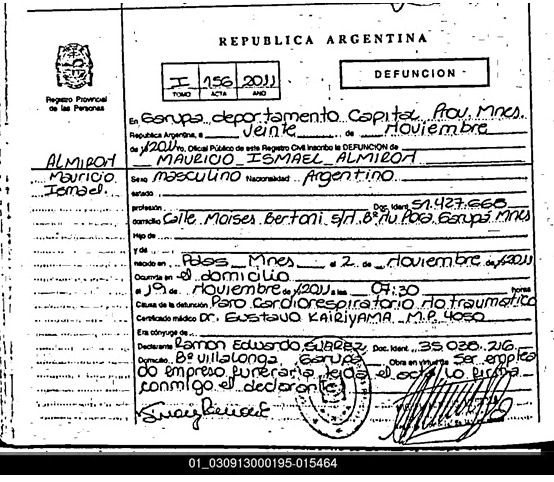 REPUBLICA ARGENTINA
Registro Provincial
de las Personas
I 156 2011
TOMO ACTA AÑO
DEFUNCION
En Garupa departamento Capital Prov. Mnes.
Republica Argentina, a Veinte de Noviembre
de 2011 Yo, Oficial Público de este Registro Civil inscribo la DEFUNCION de
MAURICIO ISMAEL ALMIRON
ALMIRON
Mauricio
Ismael
Sexo masculino Nacionalidad Argentino
estado
profesión Doc. Ident. 51.427.668
domicilio Calle Moises Bertoni s/n Bº Nu Pora Garupá Mnes
Hijo de
y de
nacido en Pdas Mnes el 2 de Noviembre de 2011
Ocurrida en el domicilio
el 19 de Noviembre de 2011 a las 07:30 horas
Causa de la defunción Paro cardiorespiratorio no traumatico
Certificado médico Dr. GUSTAVO KAIRIYAMA M.P. 4050
Era cónyuge de
Declarante Ramon Eduardo SUAREZ Doc. Ident. 35.028.216
Domicilio Bº Villalonga, Garupá Obra en virtud de Ser emplea
do empresa funeraria leida el acta lo firma
conmigo el declarante
01_030913000195-015464